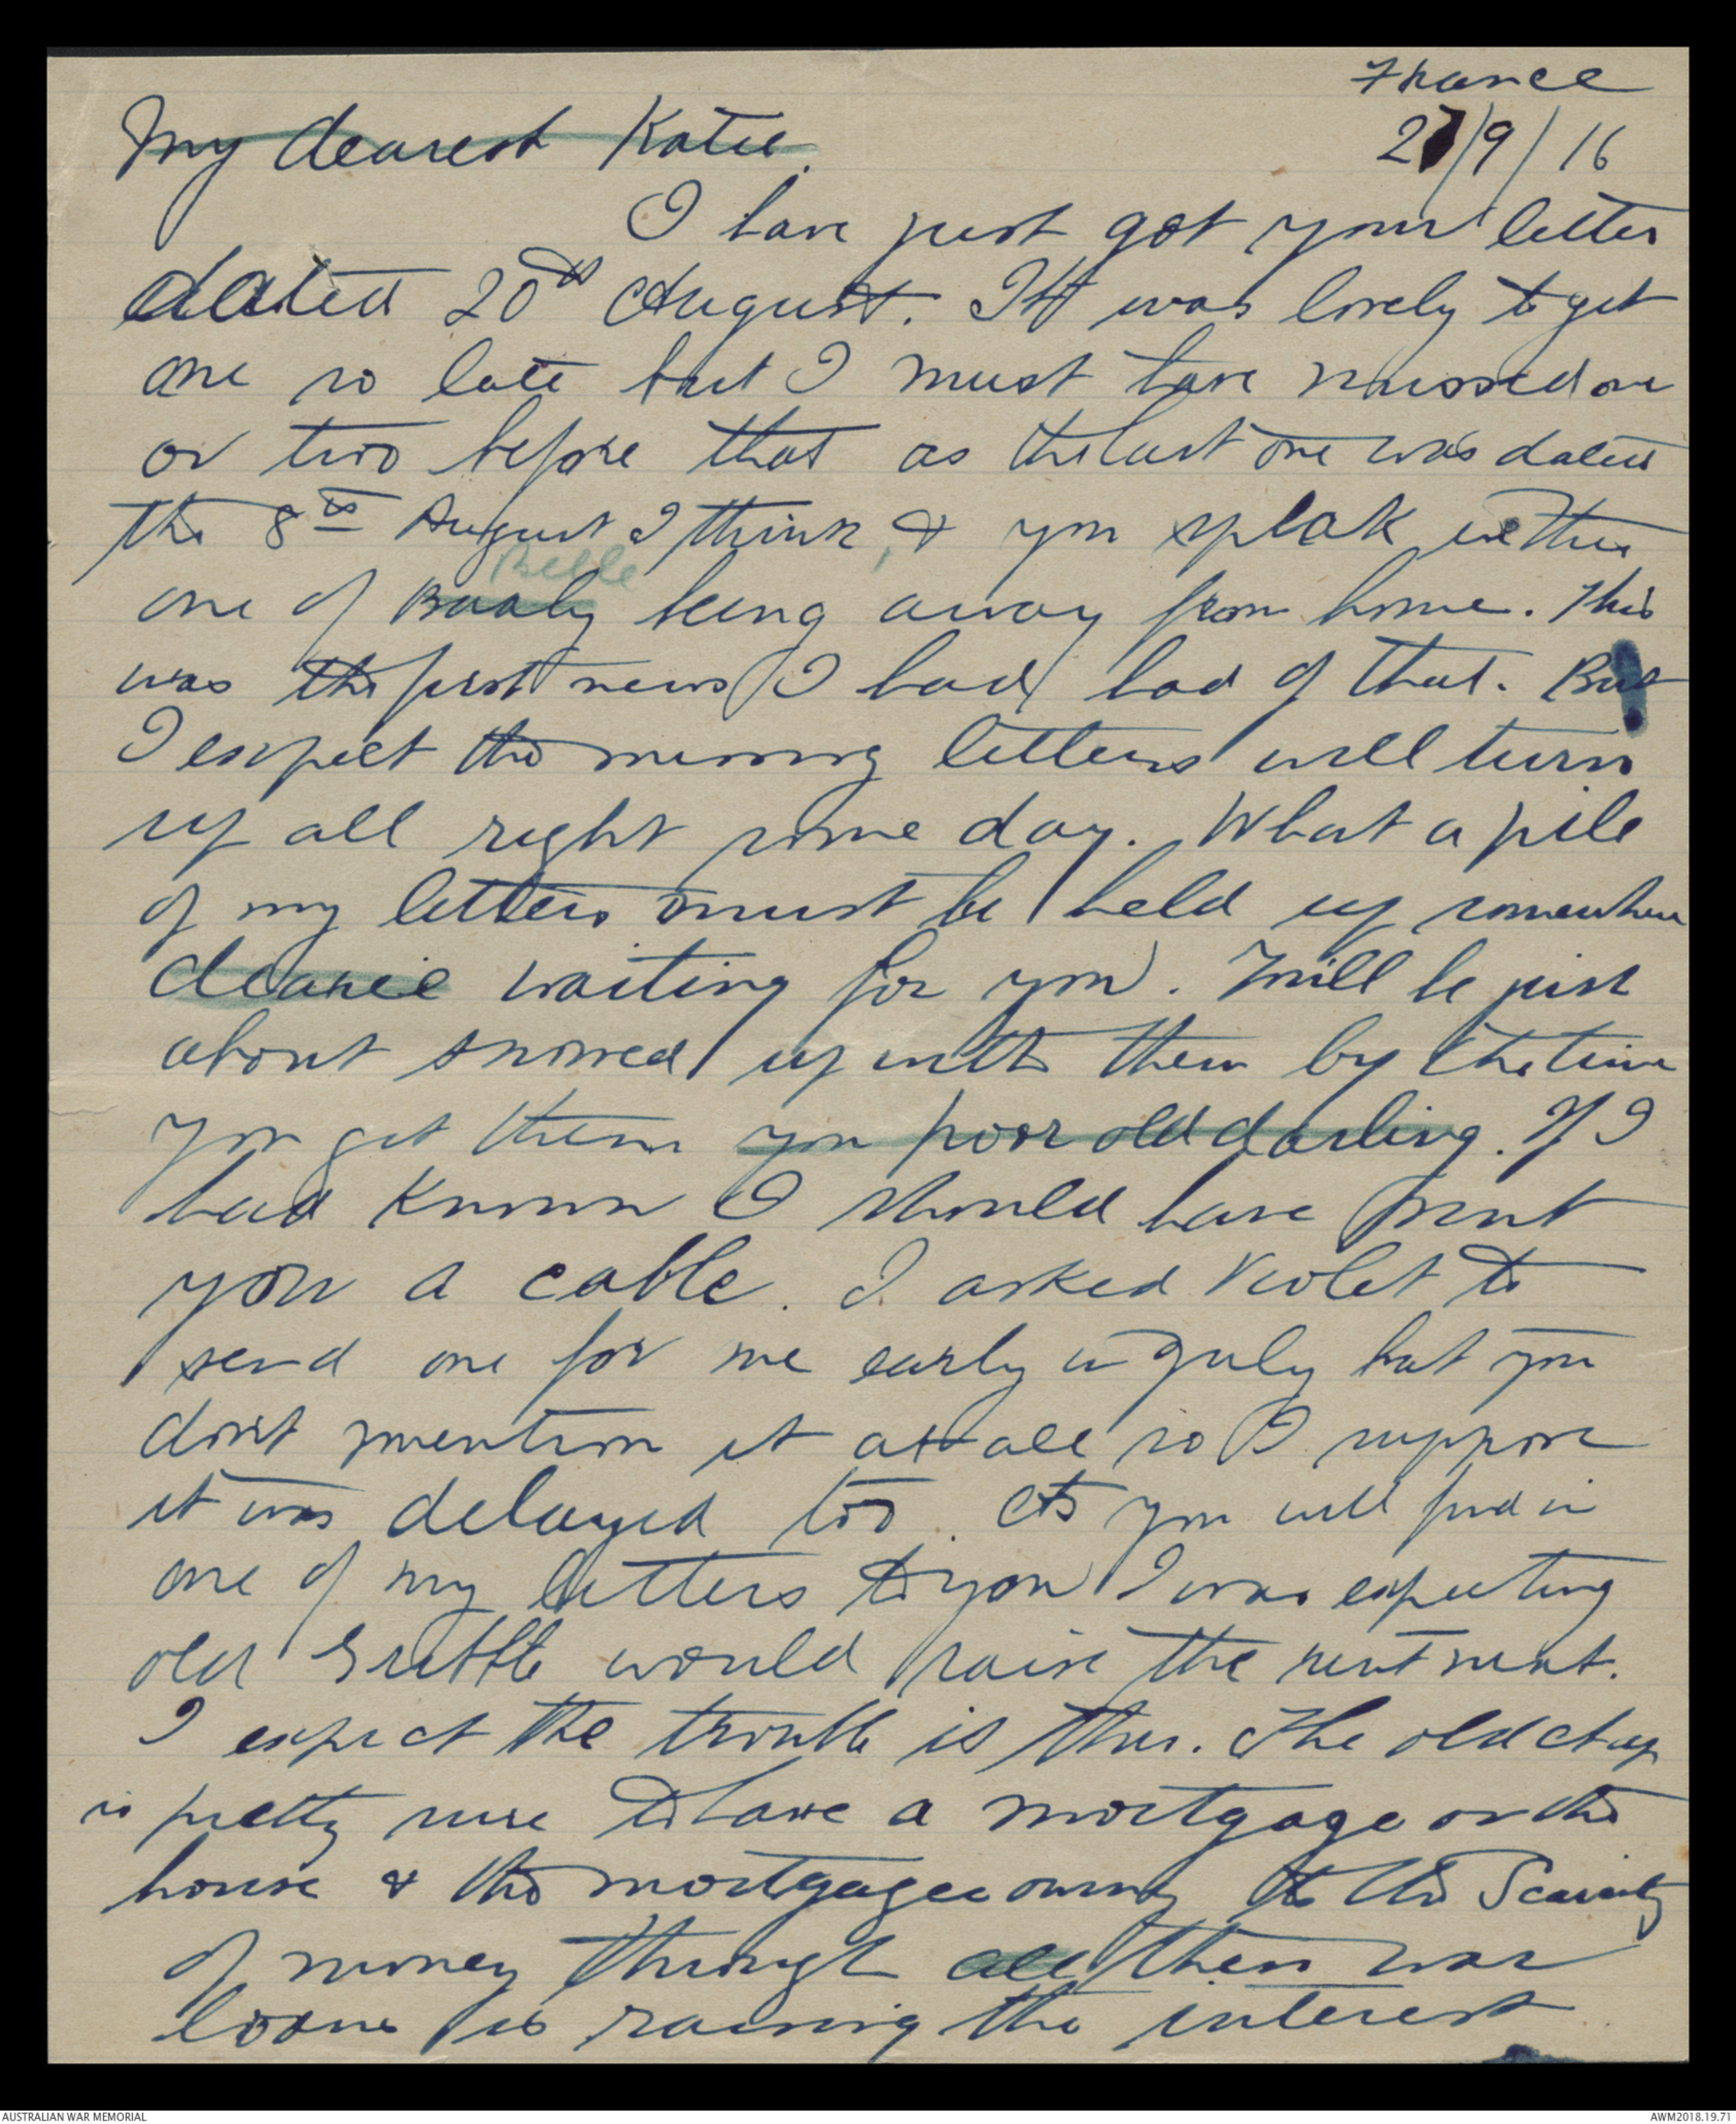 France
27/9/16
My dearest Katie.
I have just got your letter
dated 20th August. It was lovely to get
one so late but I must have missed one
or two before that as the last one was dated
the 8th August I think, & you speak in this
Belle
one of being away from home. This
was the first news I had had of that. But
I expect the missing letters will turn
up all right some day. What a pile
of my letters must be held up somewhere
dearie waiting for you. You'll be just
about snowed up with them by the time
you get them you poor old darling. If I
had known I should have sent
you a cable. I asked Violet to
send one for me early in July but you
don't mention it at all so I suppose
it was delayed too. As you will find in
one of my letters to you I was expecting
old Gribble would raise the rent next.
I expect the trouble is this. The old chap
is pretty sure to have a mortgage on the
house & the mortgagee owing to the Scarcity
of money through all these war
loans is raising the interest
AUSTRALIAN WAR MEMORIAL
AWM2018.19.71